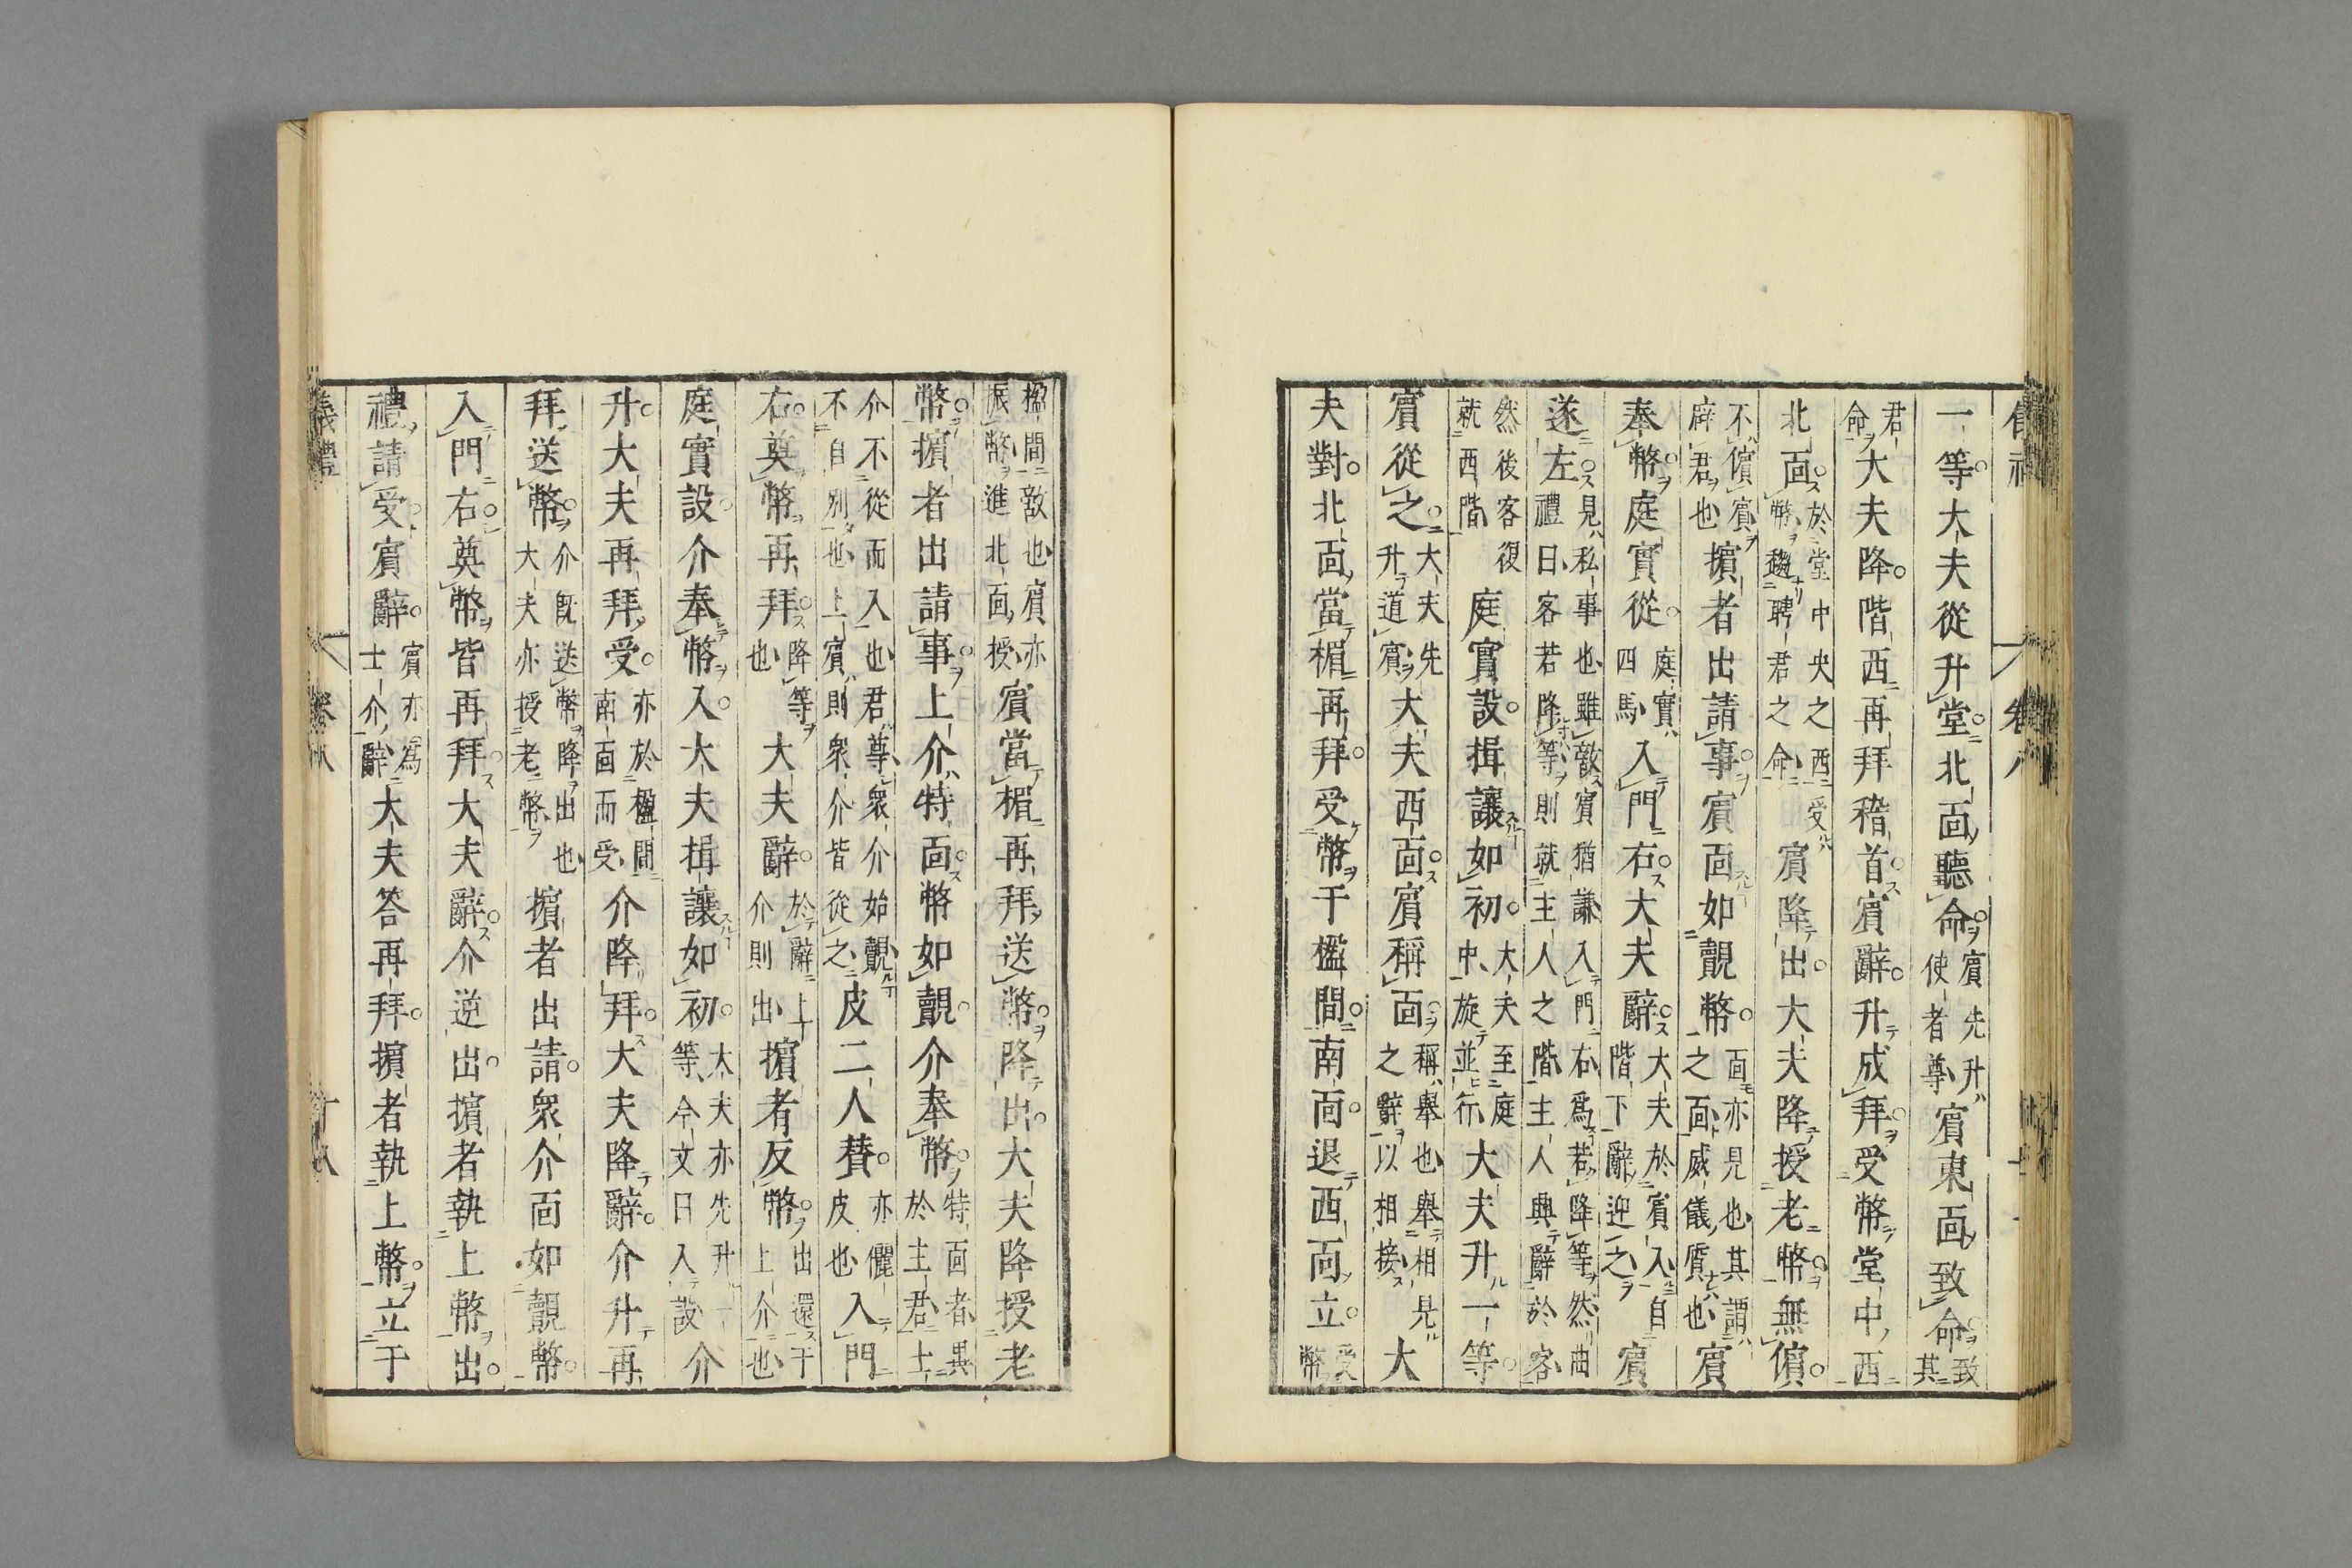 儀禮 卷八
一等大夫從升堂北面聽命賓先升使者尊賓東面致命致其
君命大夫降階西再拜稽首賓辭升成拜受幣堂中西
北面於堂中央之西受幣趨聘君之命賓降出大夫降授老幣無儐
不儐賓辟君也擯者出請事賓面如覿幣面亦見也其謂之面威儀質也賓
奉幣庭實從庭實四馬入門右大夫辭大夫於賓入自階下辭迎之賓
遂左見私事也雖敵賓猶謙入門右為若降等然曲禮曰客若降等則就主人之階主人與辭於客
然後客復就西階庭實設揖讓如初大夫至庭中旋並行大夫升一等
賓從之大夫先升道賓大夫西面賓稱面稱舉也舉相見之辭以相接大
夫對北面當楣再拜受幣于楹間南面退西面立受幣
楹間敵也賓亦振幣進北面授賓當楣再拜送幣降出大夫降授老
幣擯者出請事上介特面幣如覿介奉幣特面者異於主君士
介不從而入也君尊眾介始覿不自別也上賓則眾介皆從之皮二人贊亦儷皮也入門
右奠幣再拜降等也大夫辭於辭上介則出擯者反幣出還于上介也
庭實設介奉幣入大夫揖讓如初大夫亦先升一等今文曰入設介
升大夫再拜受亦於楹間南面而受介降拜大夫降辭介升再
拜送幣介既送幣降出也大夫亦授老幣擯者出請眾介面如覿幣
入門右奠幣皆再拜大夫辭介逆出擯者執上幣出
禮請受賓辭賓亦為士介辭大夫答再拜擯者執上幣立于
儀禮 卷八 十八